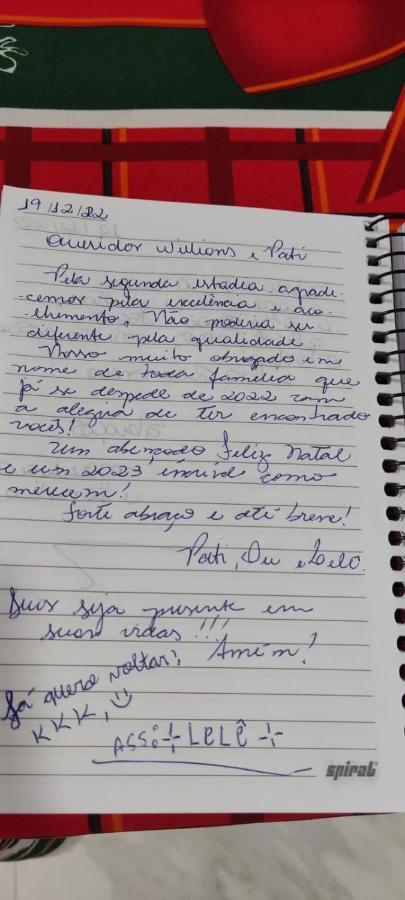 19/12/22
Queridos Willians e Pati
Pela segunda estadia agrade-
-cemos pela excelência e aco-
-lhimento. Não poderia ser
diferente pela qualidade.
Nosso muito obrigado em
nome de toda família que
já se despede de 2022 com
a alegria de ter encontrado
vocês!
Um abençoado Feliz Natal
e um 2023 incrível como
merecem!
Forte abraço e até breve!
Pati, Du e Lelê.
Deus seja presente em
suas vidas!!! Amém!
Já quero voltar!
KKK,
ASS: LeLê
spiral